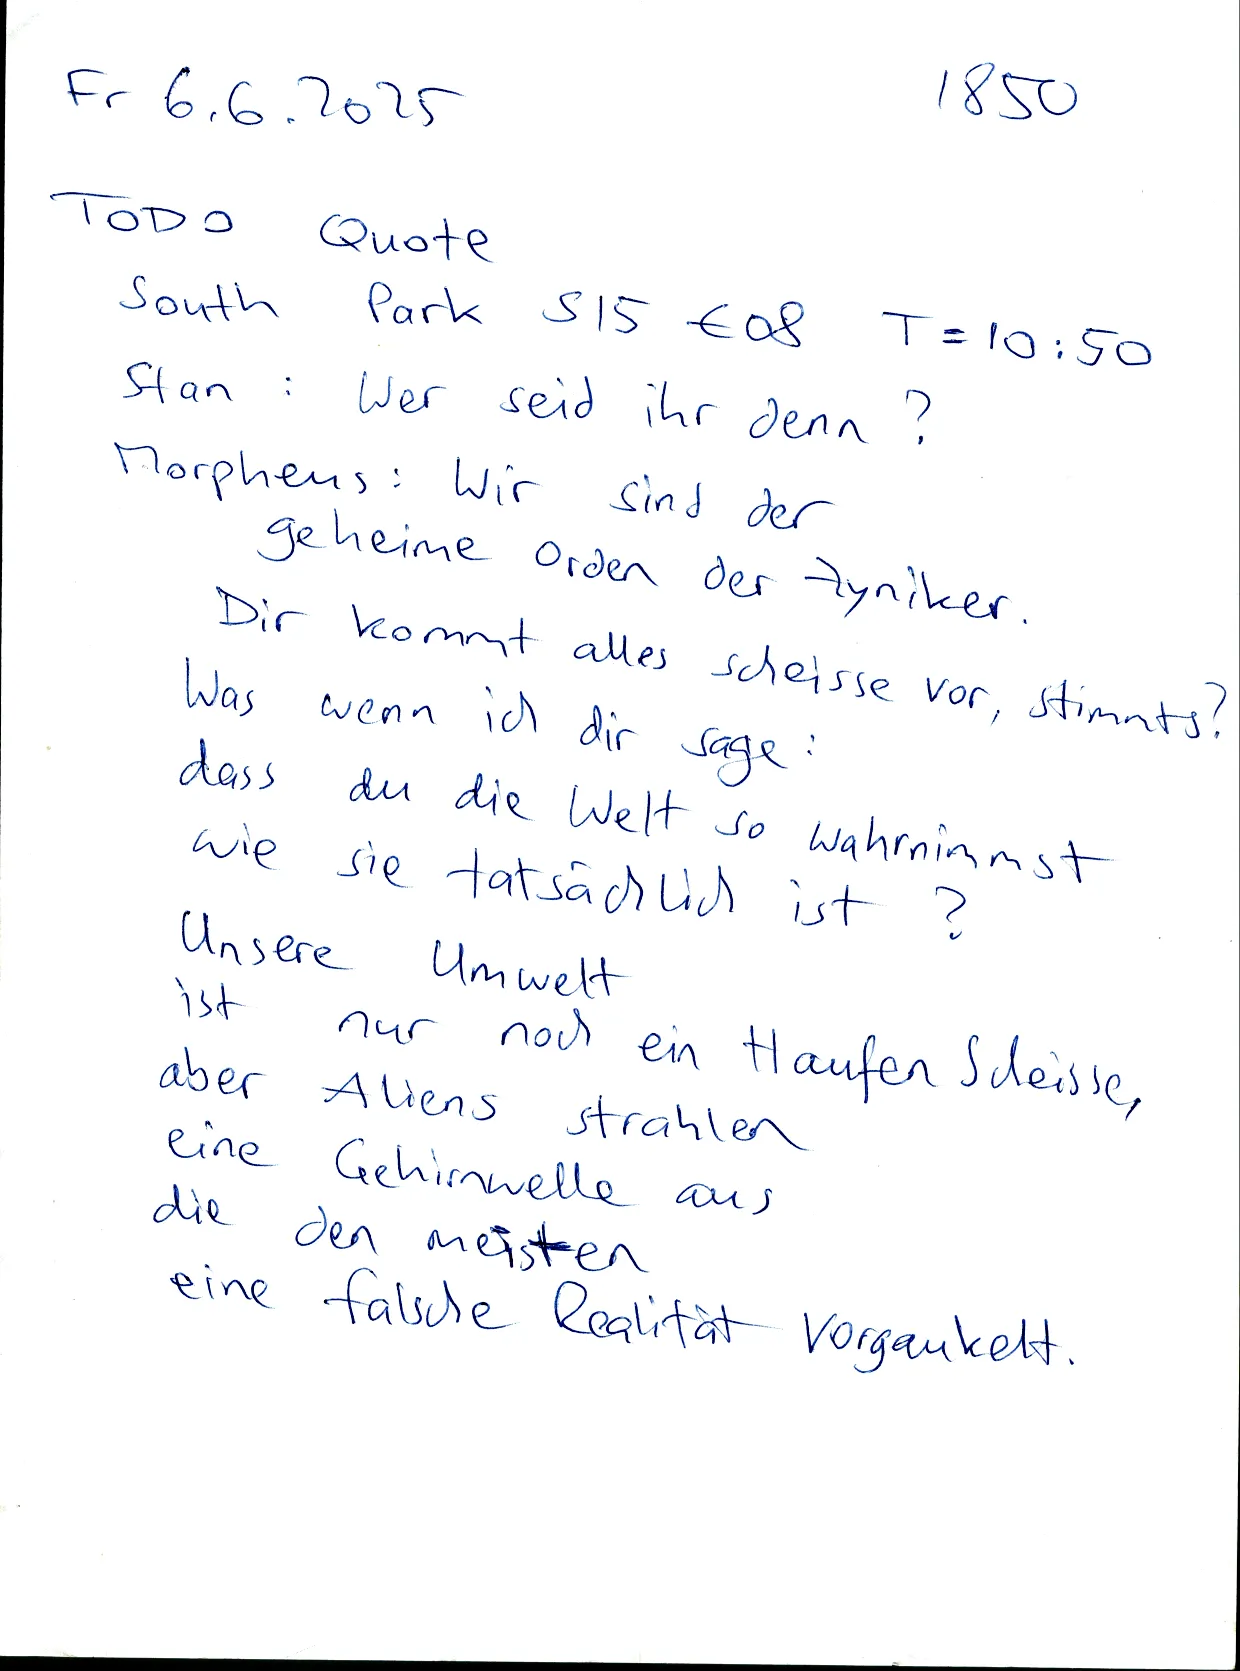 Fr 6.6.2025 1850
TODO Quote
South Park S15 E08 T=10:50
Stan : Wer seid ihr denn ?
Morpheus : Wir sind der
geheime Orden der Zyniker.
Dir kommt alles scheisse vor, stimmts?
Was wenn ich dir sage :
dass du die Welt so wahrnimmst
wie sie tatsächlich ist ?
Unsere Umwelt
ist nur noch ein Haufen Scheisse,
aber Aliens strahlen
eine Gehirnwelle aus
die den meisten
eine falsche Realität vorgaukelt.